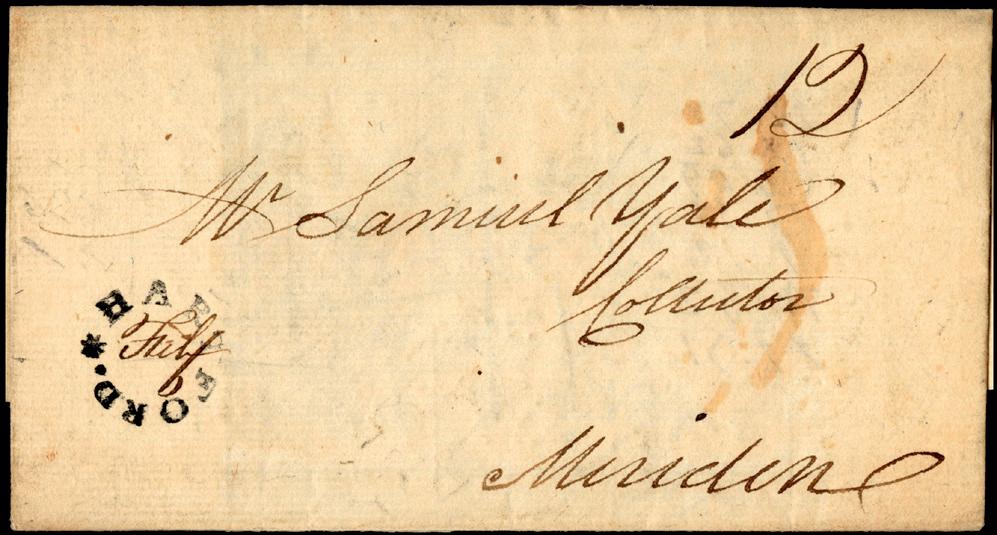 12
Mr Samuel Yale
Collector
HARTFORD. *
Meriden